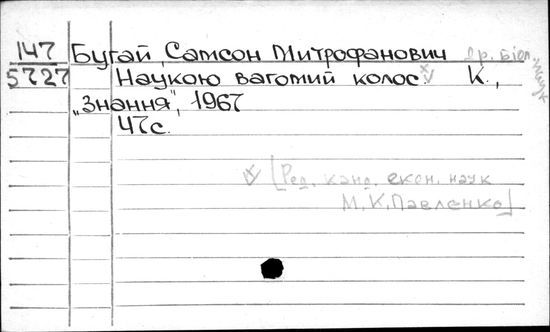 147 Бугай, Самсон Митрофанович др. біол. наук
5727 Наукою вагомий колос. К.,
„Знання", 1967
47с.
[Ред. канд. екон. наук
М.К.Павленко]